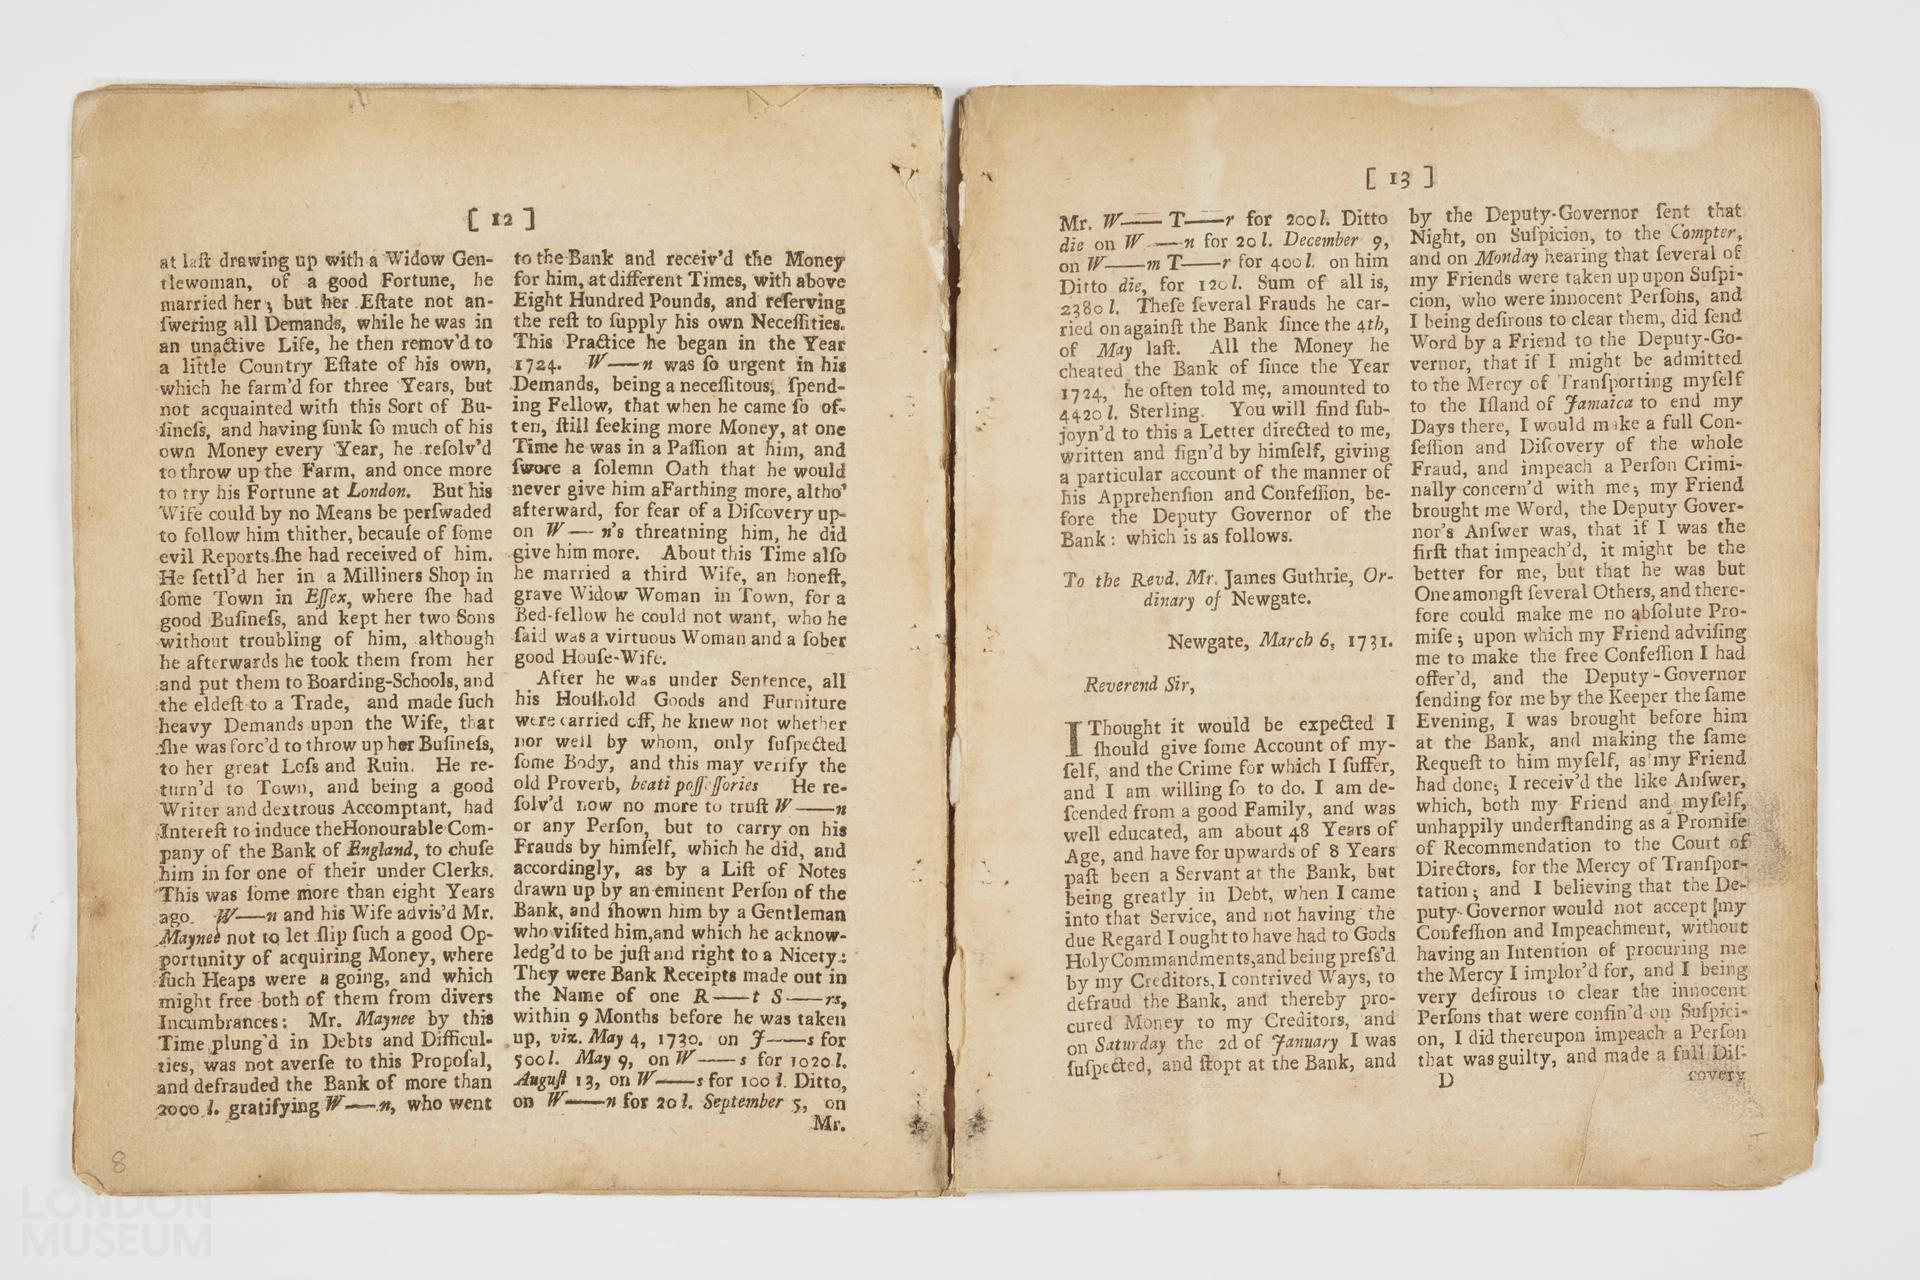 [ 12 ]
at laſt drawing up with a Widow Gen-
tlewoman, of a good Fortune, he
married her; but her Eſtate not an-
ſwering all Demands, while he was in
an unactive Life, he then remov'd to
a little Country Eſtate of his own,
which he farm'd for three Years, but
not acquainted with this Sort of Bu-
ſineſs, and having ſunk ſo much of his
own Money every Year, he reſolv'd
to throw up the Farm, and once more
to try his Fortune at London. But his
Wife could by no Means be perſwaded
to follow him thither, becauſe of ſome
evil Reports ſhe had received of him.
He ſettl'd her in a Milliners Shop in
ſome Town in Eſſex, where ſhe had
good Buſineſs, and kept her two Sons
without troubling of him, although
he afterwards he took them from her
and put them to Boarding-Schools, and
the eldeſt to a Trade, and made ſuch
heavy Demands upon the Wife, that
ſhe was forc'd to throw up her Buſineſs,
to her great Loſs and Ruin. He re-
turn'd to Town, and being a good
Writer and dextrous Accomptant, had
Intereſt to induce theHonourable Com-
pany of the Bank of England, to chuſe
him in for one of their under Clerks.
This was ſome more than eight Years
ago. W——n and his Wife advis'd Mr.
Maynee not to let ſlip ſuch a good Op-
portunity of acquiring Money, where
ſuch Heaps were a going, and which
might free both of them from divers
Incumbrances: Mr. Maynee by this
Time plung'd in Debts and Difficul-
ties, was not averſe to this Propoſal,
and defrauded the Bank of more than
2000 l. gratifying W——n, who went
to the Bank and receiv'd the Money
for him, at different Times, with above
Eight Hundred Pounds, and reſerving
the reſt to ſupply his own Neceſſities.
This Practice he began in the Year
1724. W——n was ſo urgent in his
Demands, being a neceſſitous, ſpend-
ing Fellow, that when he came ſo of-
ten, ſtill ſeeking more Money, at one
Time he was in a Paſſion at him, and
ſwore a ſolemn Oath that he would
never give him aFarthing more, altho'
afterward, for fear of a Diſcovery up-
on W——n's threatning him, he did
give him more. About this Time alſo
he married a third Wife, an honeſt,
grave Widow Woman in Town, for a
Bed-fellow he could not want, who he
ſaid was a virtuous Woman and a ſober
good Houſe-Wife.
After he was under Sentence, all
his Houſhold Goods and Furniture
were carried off, he knew not whether
nor well by whom, only ſuſpected
ſome Body, and this may verify the
old Proverb, beati poſſeſſories He re-
ſolv'd now no more to truſt W——n
or any Perſon, but to carry on his
Frauds by himſelf, which he did, and
accordingly, as by a Liſt of Notes
drawn up by an eminent Perſon of the
Bank, and ſhown him by a Gentleman
who viſited him,and which he acknow-
ledg'd to be juſt and right to a Nicety:
They were Bank Receipts made out in
the Name of one R——t S——rs,
within 9 Months before he was taken
up, viz. May 4, 1730. on J——s for
500l. May 9, on W——s for 1020l.
Auguſt 13, on W——s for 100 l. Ditto,
on W——n for 20 l. September 5, on
Mr.
8
[ 13 ]
Mr. W—— T——r for 200l. Ditto
die on W——n for 20 l. December 9,
on W——m T——r for 400l. on him
Ditto die, for 120l. Sum of all is,
2380 l. Theſe ſeveral Frauds he car-
ried on againſt the Bank ſince the 4th,
of May laſt. All the Money he
cheated the Bank of ſince the Year
1724, he often told me, amounted to
4420 l. Sterling. You will find ſub-
joyn'd to this a Letter directed to me,
written and ſign'd by himſelf, giving
a particular account of the manner of
his Apprehenſion and Confeſſion, be-
fore the Deputy Governor of the
Bank: which is as follows.
To the Revd. Mr. James Guthrie, Or-
dinary of Newgate.
Newgate, March 6, 1731.
Reverend Sir,
I Thought it would be expected I
ſhould give ſome Account of my-
ſelf, and the Crime for which I ſuffer,
and I am willing ſo to do. I am de-
ſcended from a good Family, and was
well educated, am about 48 Years of
Age, and have for upwards of 8 Years
paſt been a Servant at the Bank, but
being greatly in Debt, when I came
into that Service, and not having the
due Regard I ought to have had to Gods
Holy Commandments,and being preſs'd
by my Creditors, I contrived Ways, to
defraud the Bank, and thereby pro-
cured Money to my Creditors, and
on Saturday the 2d of January I was
ſuſpected, and ſtopt at the Bank, and
by the Deputy-Governor ſent that
Night, on Suſpicion, to the Compter,
and on Monday hearing that ſeveral of
my Friends were taken up upon Suſpi-
cion, who were innocent Perſons, and
I being deſirous to clear them, did ſend
Word by a Friend to the Deputy-Go-
vernor, that if I might be admitted
to the Mercy of Tranſporting myſelf
to the Iſland of Jamaica to end my
Days there, I would make a full Con-
feſſion and Diſcovery of the whole
Fraud, and impeach a Perſon Crimi-
nally concern'd with me; my Friend
brought me Word, the Deputy Gover-
nor's Anſwer was, that if I was the
firſt that impeach'd, it might be the
better for me, but that he was but
One amongſt ſeveral Others, and there-
fore could make me no abſolute Pro-
miſe; upon which my Friend adviſing
me to make the free Confeſſion I had
offer'd, and the Deputy-Governor
ſending for me by the Keeper the ſame
Evening, I was brought before him
at the Bank, and making the ſame
Requeſt to him myſelf, as my Friend
had done; I receiv'd the like Anſwer,
which, both my Friend and myſelf,
unhappily underſtanding as a Promiſe
of Recommendation to the Court of
Directors, for the Mercy of Tranſpor-
tation; and I believing that the De-
puty-Governor would not accept my
Confeſſion and Impeachment, without
having an Intention of procuring me
the Mercy I implor'd for, and I being
very deſirous to clear the innocent
Perſons that were confin'd on Suſpici-
on, I did thereupon impeach a Perſon
that was guilty, and made a full Diſ-
D covery
LONDON
MUSEUM